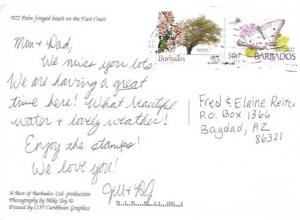 922 Palm fringed beach on the East Coast
Mom + Dad,
We miss you lots!
We are having a great
time here! What beautiful
water + lovely weather!
Enjoy the stamps!
We love you!
Jeff +
A Best of Barbados Ltd. production
Photography by Mike Toy ©
Printed by COT Caribbean Graphics
Barbados
BARBADOS
Fred & Elaine
P.O. Box 1366
Bagdad, AZ
86321